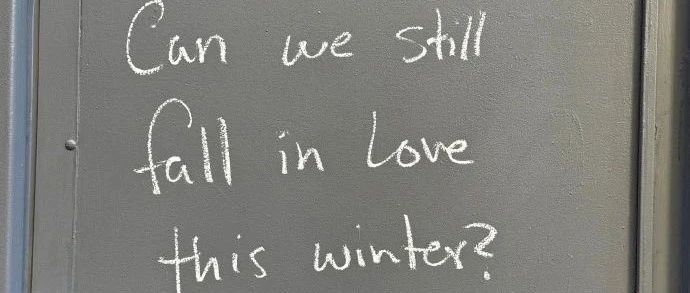 Can we still
fall in Love
this winter?